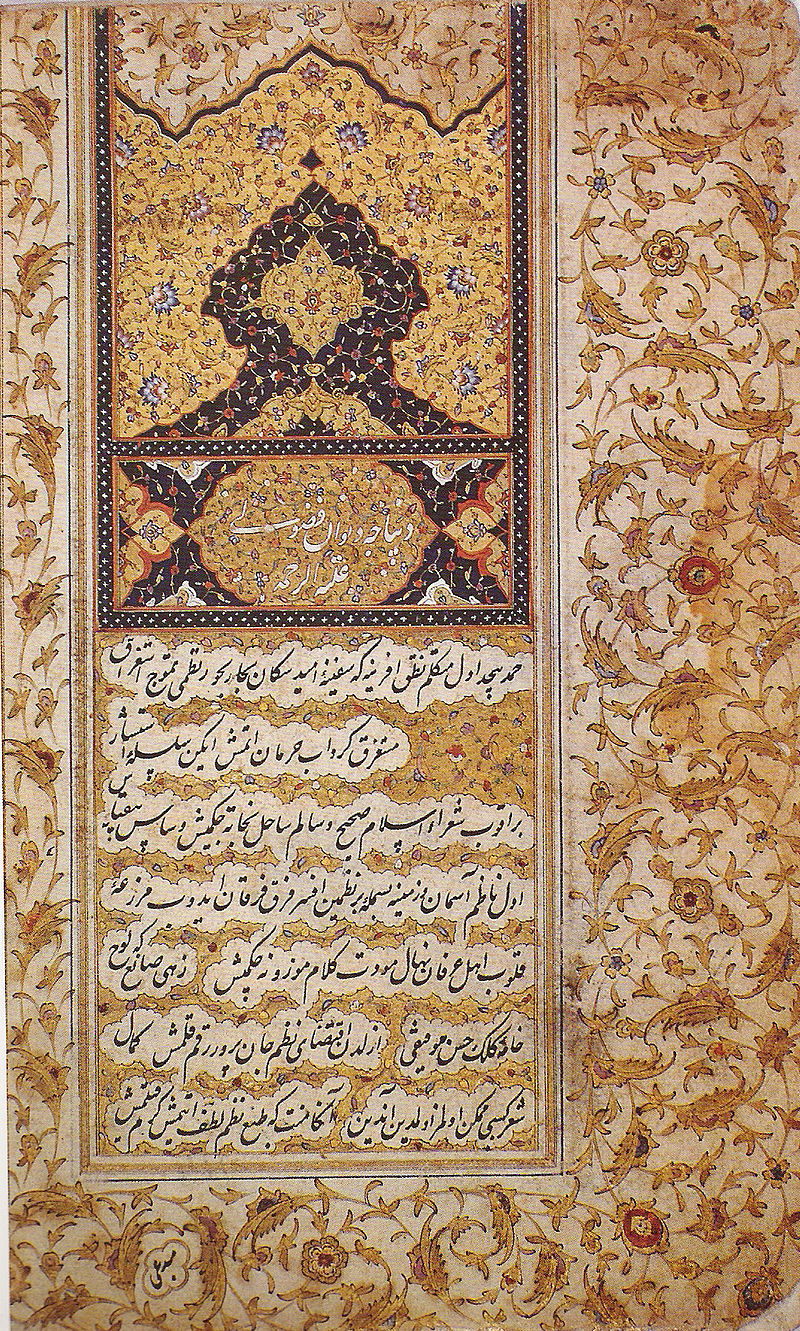 دیباجه دیوان فضولی
علیه الرحمه
حمد بیحد اول متکلم نطق افرینه که سفینۀ امید سکان بحار بحور نظمی تموج استغراق
مستغرق گرداب حرمان اتمش ایکن سلسلۀ استبشار
براقوب شعراء اسلام صحیح و سالم ساحل نجاته چکمیش و سپاس بیقیاس
اول ناظم آسمان و زمینه بسملۀ بر نظمین افسر فرق فرقان ایدوب مزرعۀ
قلوب اهل عرفان نهال مودت کلام موزونه چکمیش زهی صانع که لوح
خامۀ کلک حسن موفیقی ازلدن اقتضای نظم جان پرور رقم قلمش کمال
شعر کسبی ممکن اولمز اولدین آندین آنکا منت که طبع نظم لطف اتمیش کرم قیلمیش